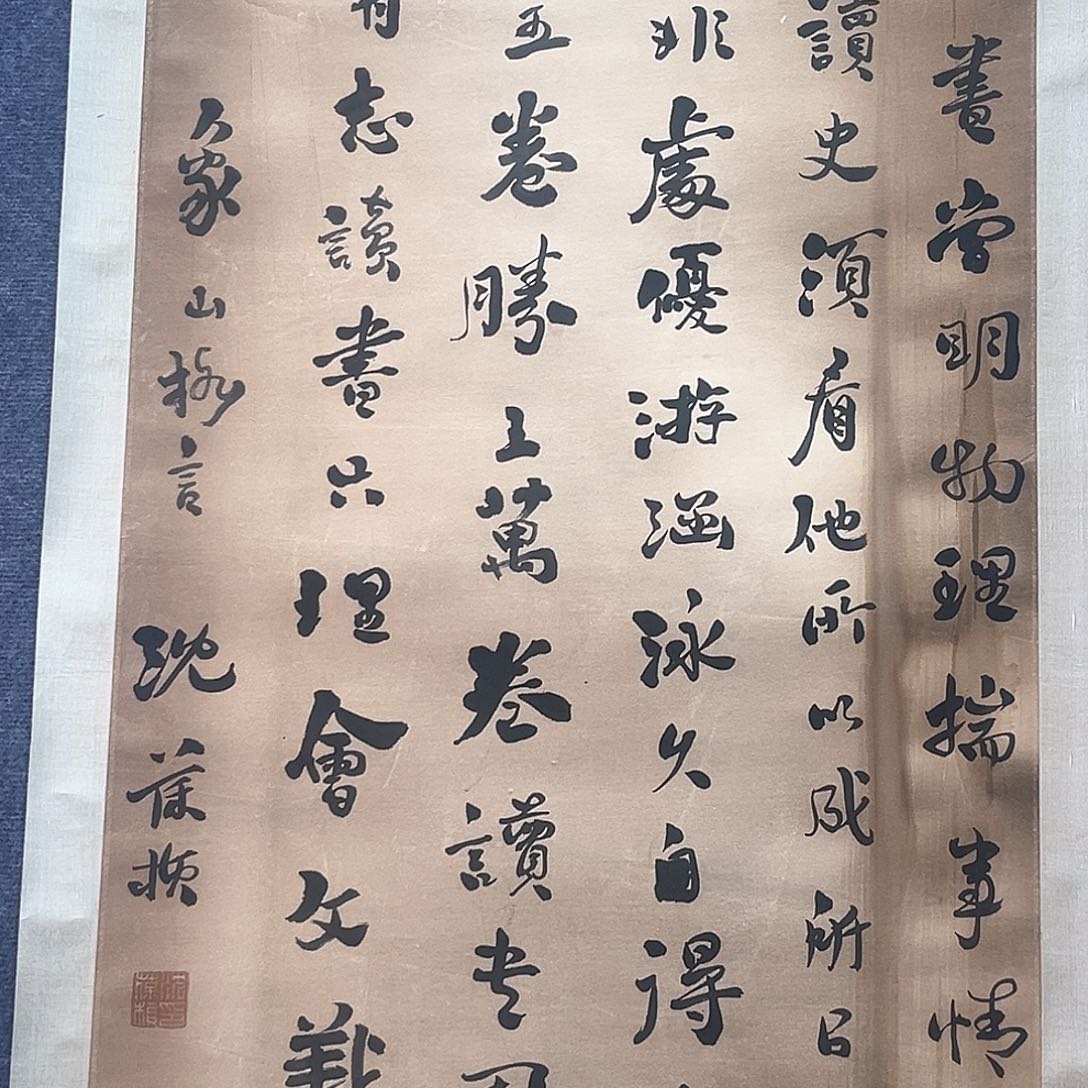 書當明物理揣事情
讀史須看他所以成所㠯
非處優游涵泳久自得
五卷勝三萬卷讀書
志讀書只理會文義
象山格言 沈葆楨
沈印葆楨